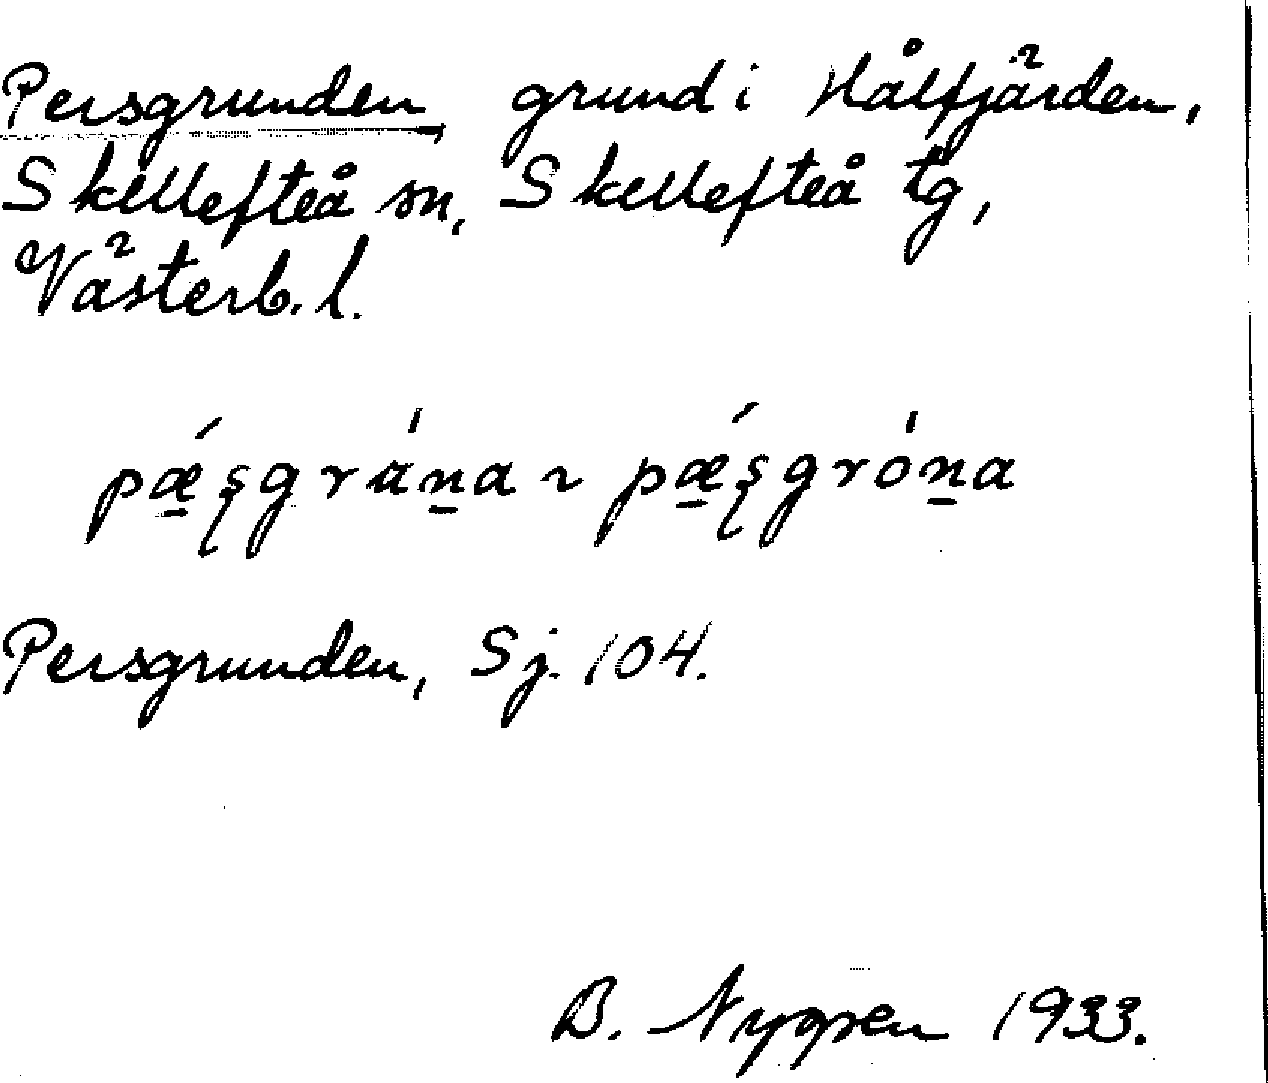 Persgrunden, grund i Hålfjärden,
Skellefteå sn, Skellefteå tg,
Västerb. l.
pǽșgrána ~ pǽșgróna
Persgrunden, Sj. 104.
B. Nygren 1933.